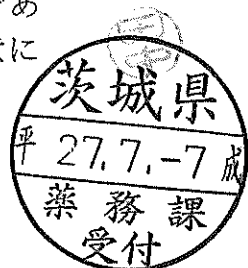 め
に
茨城県
平 27.7.-7 成
薬務課
受付